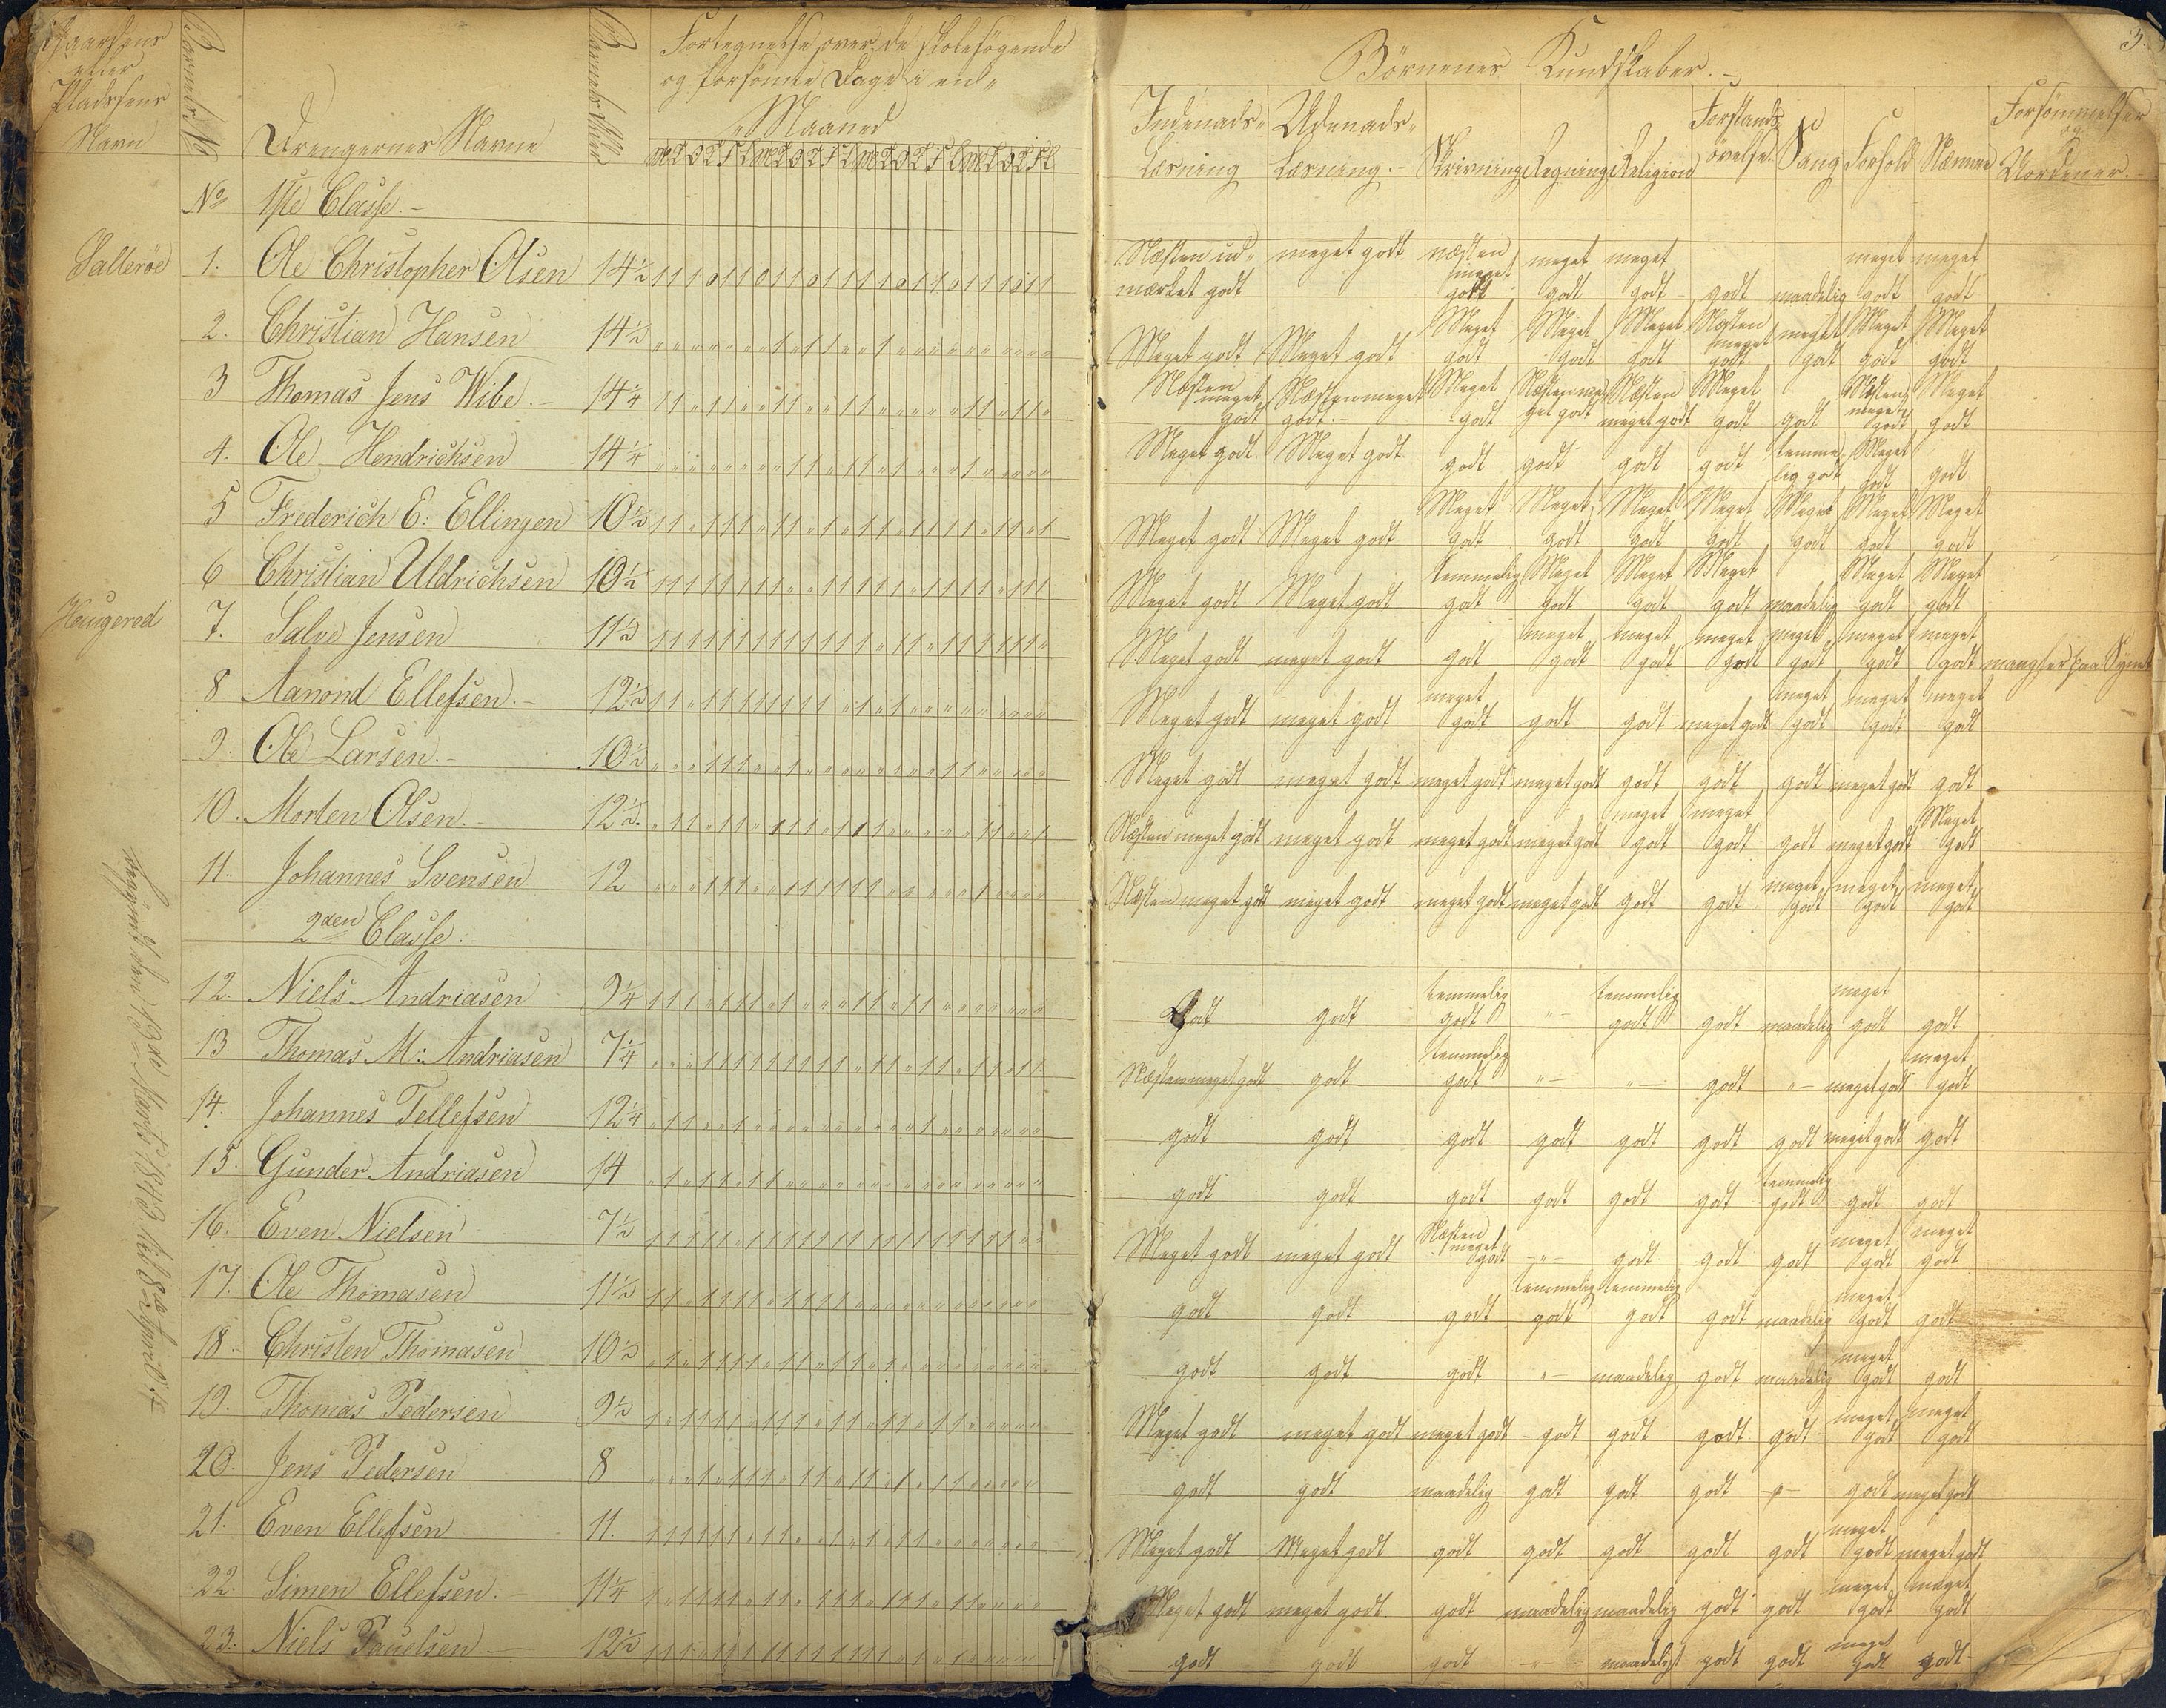 Gaardens
eller
Pladsens
Navn
Børnenes No
Drengernes Navne
Børnenes Alder
Fortegnelse over de skolesøgende
og forsømte Dage i en
Maaned
M T O T F L M T O T F L M T O T F L M T O T F L
Børnenes Kundskaber.
3.
Indenads-
Læsning
Udenads-
Læsning.
Skrivning
Regning
Religion
Forstands
øvelse.
Sang
Forhold
Nemme
Forsømmelser
og
Uordener.
No 1ste Classe.
Salterøe 1. Ole Christopher Olsen 14½ Næsten udmærket godt meget godt næsten meget godt meget godt meget godt godt maadelig meget godt meget godt
2. Christian Hansen 14½ Meget godt Meget godt Meget godt Meget godt Meget godt Næsten meget godt meget godt Meget godt Meget godt
3 Thomas Jens Wibe. 14¼ Næsten meget godt Næsten meget godt. Meget godt Næsten meget godt Næsten meget godt Meget godt godt Næsten meget godt Meget godt
4. Ole Hendrichsen 14¼ Meget godt Meget godt godt godt godt godt temmelig godt Meget godt godt
5 Frederich E: Ellingen 10½ Meget godt Meget godt Meget godt Meget godt Meget godt Meget godt Meget godt Meget godt Meget godt
6 Christian Uldrichsen 10½ Meget godt Meget godt temmelig godt Meget godt Meget godt Meget godt maadelig Meget godt Meget godt
Haugered 7. Salve Jensen 11½ Meget godt meget godt godt meget godt meget godt meget godt meget godt meget godt meget godt paa Synet
8 Aanond Ellefsen. 12½ Meget godt meget godt meget godt godt godt meget godt meget godt meget godt meget godt
9. Ole Larsen. 10½ Meget godt meget godt meget godt meget godt godt godt godt meget godt godt
10. Morten Olsen. 12½. Næsten meget godt meget godt meget godt meget godt meget godt meget godt godt meget godt Meget godt
11. Johannes Svensen 12 Næsten meget godt meget godt meget godt meget godt godt godt meget godt meget godt meget godt
2den Classe.
12. Niels Andriasen 9¼ Godt godt temmelig godt " temmelig godt godt maadelig meget godt godt
13. Thomas M: Andriasen 7¼ Næsten meget godt godt temmelig godt " " godt " meget godt meget godt
14. Johannes Tellefsen 12¼ godt godt godt godt godt godt godt meget godt godt
15. Gunder Andriasen 14 godt godt godt godt godt godt temmelig godt godt godt
16. Even Nielsen 7½ Meget godt meget godt Næsten meget godt " godt godt godt meget godt meget godt
17. Ole Thomasen 11½ godt godt godt temmelig godt temmelig godt godt maadelig meget godt godt
18. Christen Thomasen 10½ godt godt godt " maadelig godt maadelig meget godt godt
19. Thomas Pedersen 9½ Meget godt meget godt meget godt godt godt godt godt meget godt meget godt
20. Jens Pedersen 8 godt godt maadelig godt godt godt " godt meget godt
21. Even Ellefsen 11. Meget godt Meget godt godt godt godt godt godt meget godt meget godt
22. Simen Ellefsen. 11¼ Meget godt meget godt godt maadelig maadelig godt godt meget godt meget godt
23. Niels Pauelsen 12½ godt godt godt " maadeligt godt godt meget godt godt
Begyndt den 13de Marts 1843 til 8de April